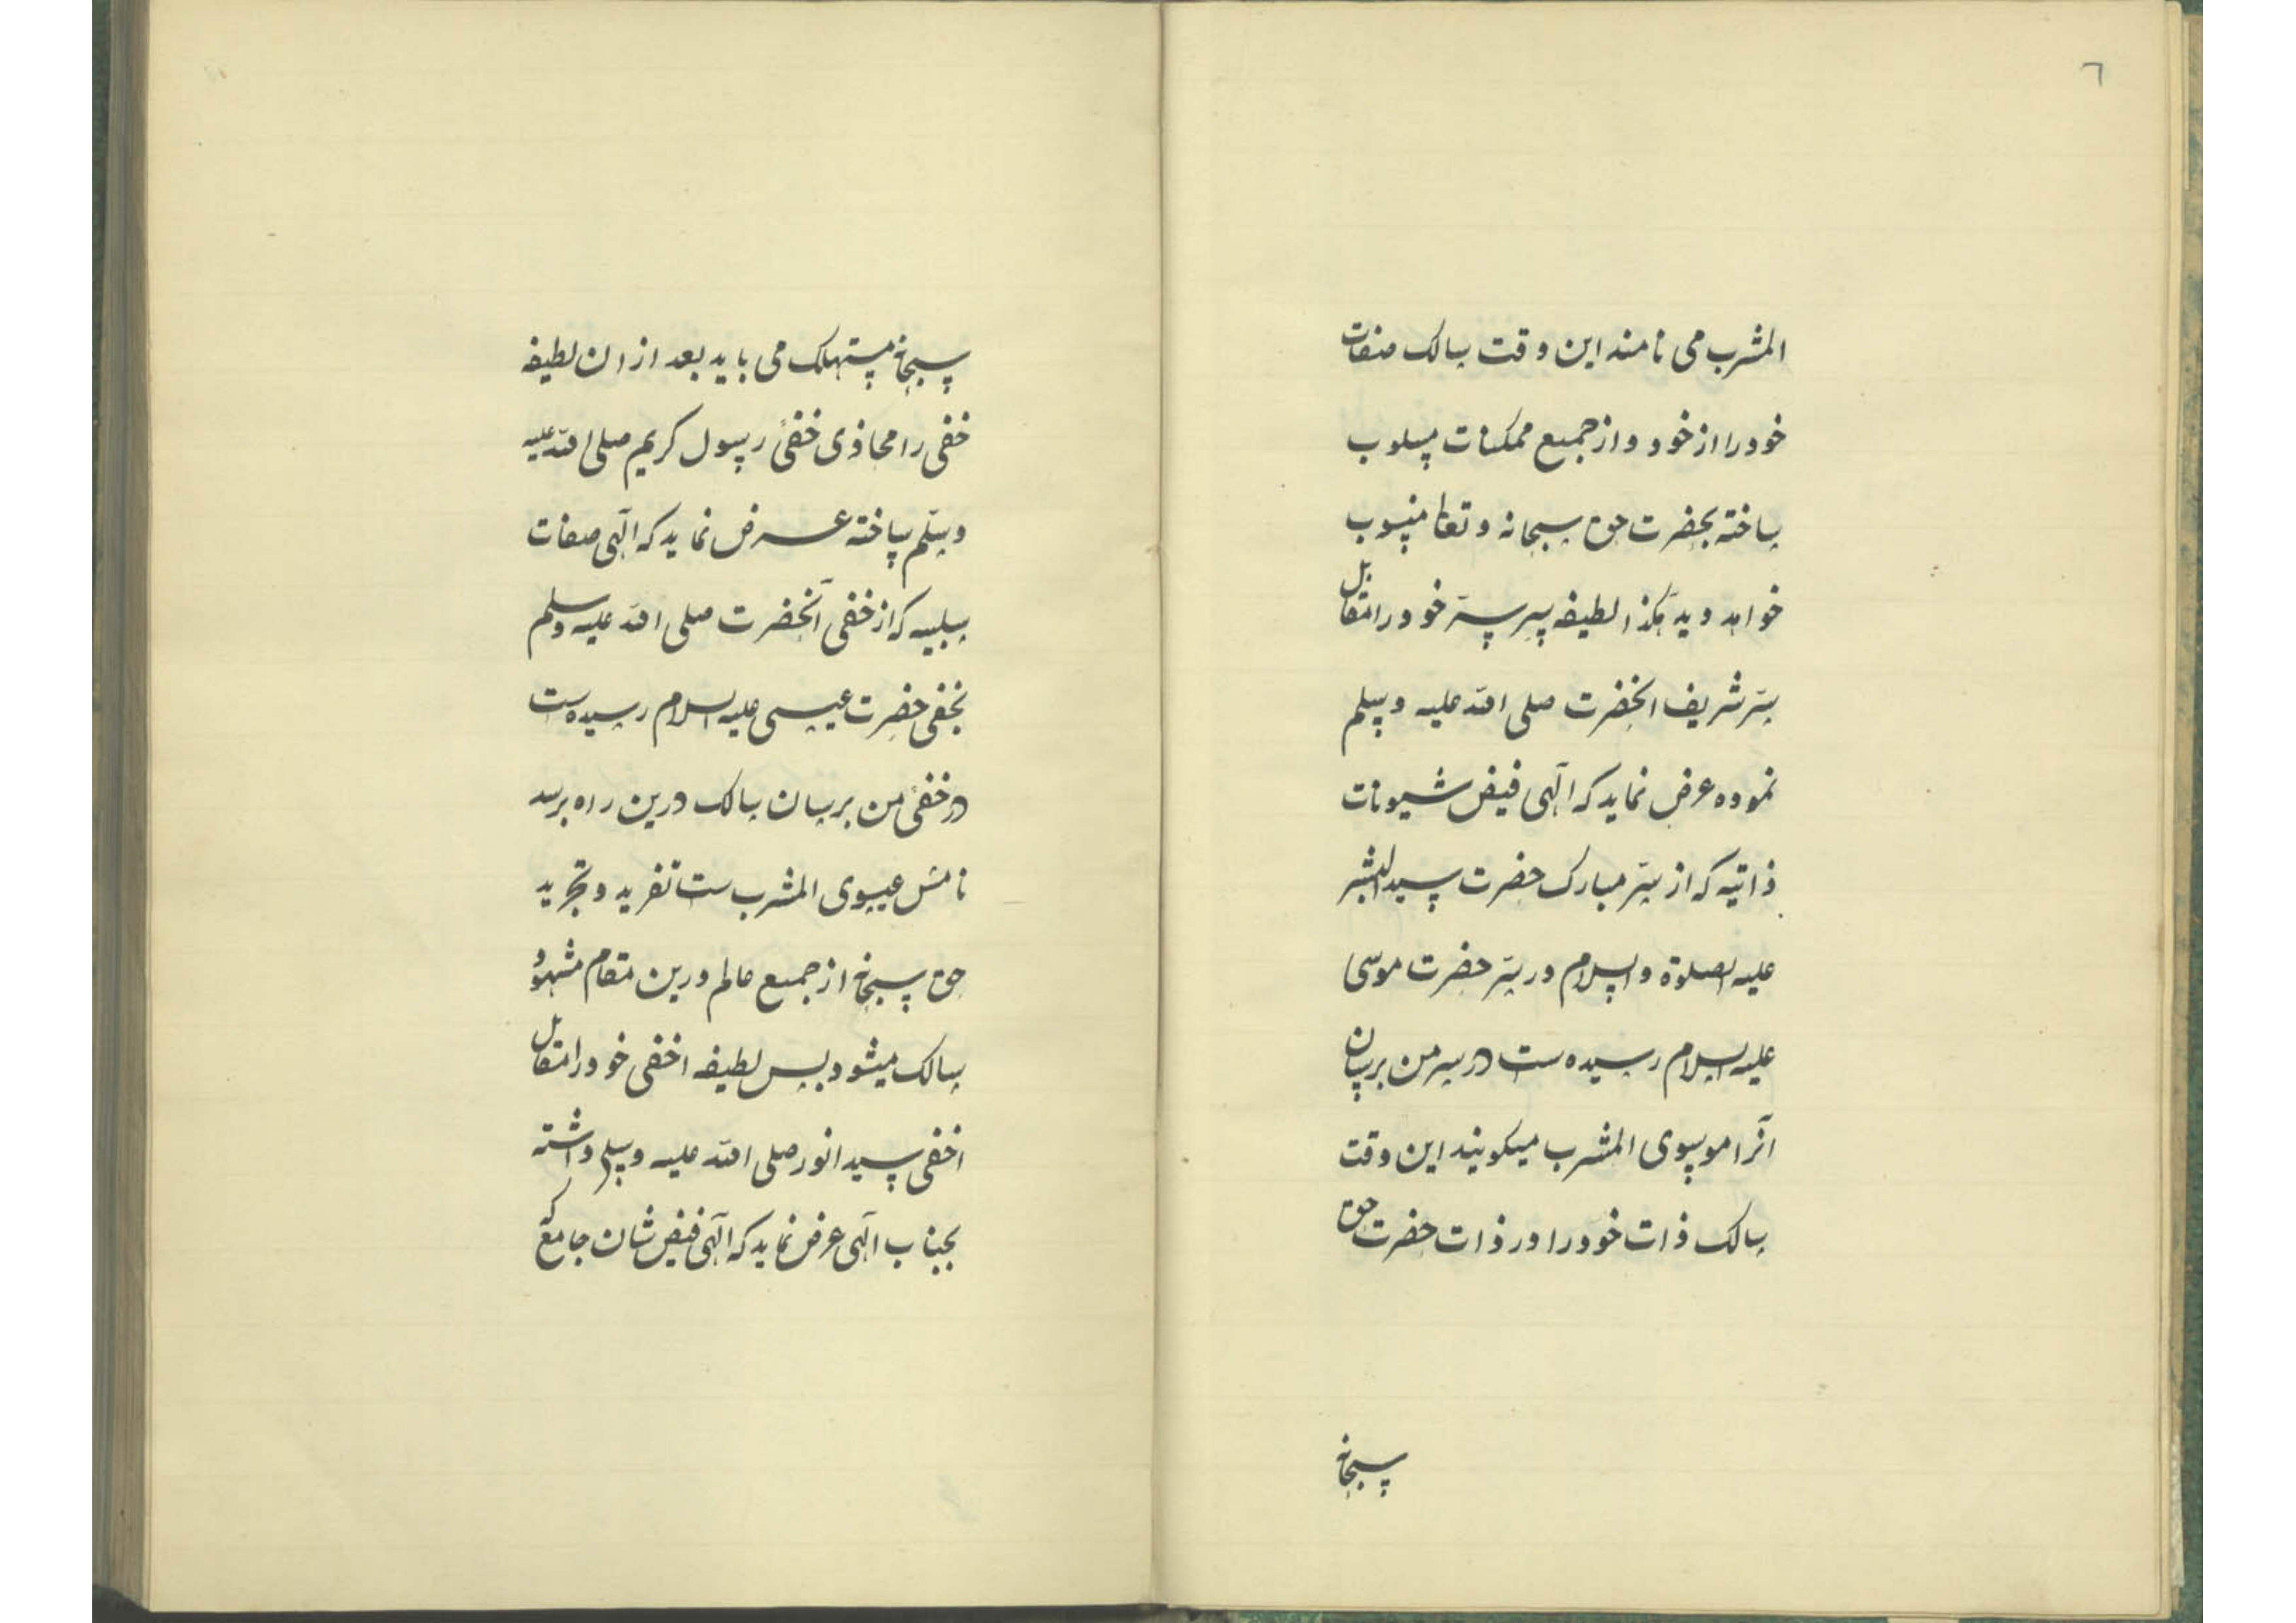 ٦
المشرب می نامند این وقت سالک صفات
خود را از خود و از جمیع ممکنات مسلوب
ساخته بحضرت حق سبحانه و تعا منسوب
خواهد دید هکذا لطیفه سر سرّ خود را متقابل
سرّ شریف انحضرت صلی الله علیه وسلم
نموده عرض نماید که الٓهی فیض شیونات
ذاتیه که از سرّ مبارک حضرت سید البشر
علیه الصلوة والسلام در سرّ حضرت موسی
علیه السلام رسیده ست در سر من برسان
آنرا موسوی المشرب میکویند این وقت
سالک ذات خود را در ذات حضرت حق
سبحانه
سبحانه مستهلک می یابد بعد ازان لطیفه
خفی را محاذی خفئ رسول کریم صلی الله علیه
وسلم ساخته عرض نماید که الٓهی صفات
سلبیه که از خفی آنحضرت صلی الله علیه وسلم
بخفی حضرت عیسی علیه السلام رسیده ست
در خفئ من برسان سالک درین راه برسد
نامش عیسوی المشرب ست تفرید و تجرید
حق سبحانه از جمیع عالم درین مقام مشهود
سالک میشود پس لطیفه اخفی خود را متقابل
اخفی سید انور صلی الله علیه وسلم داشته
بجناب الٓهی عرض نماید که الٓهی فیض شان جامع که